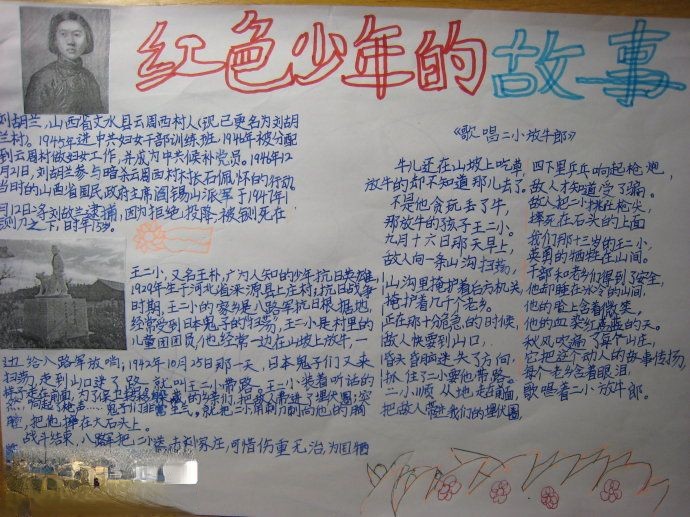 红色少年的故事
刘胡兰,山西省文水县云周西村人(现已更名为刘胡
兰村)。1945年进中共妇女干部训练班,1946年被分配
到云周村做妇女工作,并成为中共候补党员。1946年12
月21日,刘胡兰参与暗杀云周西村村长石佩怀的行动。
当时的山西省国民政府主席阎锡山派军于1947年1
月12日将刘故兰逮捕,因为拒绝投降,被铡死在
铡刀之下,时年15岁。
王二小,又名王朴,广为人知的少年抗日英雄,
1929年生于河北省涞源县上庄村,抗日战争
时期,王二小的家乡是八路军抗日根据地,
经常受到日本鬼子的扫荡,王二小是村里的
儿童团团员,他经常一边在山坡上放牛,一
边给八路军放哨;1942年10月25日那一天,日本鬼子们又来
扫荡,走到山口迷了路,就叫王二小带路。王二小装着听话的
样子走在前面,为了保卫转移躲藏的乡亲们,把敌人带进了埋伏圈;突
然,响起了枪声……鬼子们非常生气。就把二小用刺刀刺向他的胸
膛,把他摔在大石头上。
战斗结束,八路军把二小送去刘家庄,可惜伤重无治,为国牺
《歌唱二小放牛郎》
牛儿还在山坡上吃草,
放牛的却不知道那儿去了。
不是他贪玩丢了牛,
那放牛的孩子王二小。
九月十六日那天早上,
敌人向一条山沟扫荡,
山沟里掩护着后方机关,
掩护着几个老乡。
正在那十分危急的时候,
敌人快要到山口,
昏头昏脑迷失了方向,
抓住了二小要他带路。
二小顺从地走在前面,
把敌人带进我们的埋伏圈,
四下里乒乒响起枪炮,
敌人才知道受了骗。
敌人把二小挑在枪尖,
摔死在石头的上面
我们那十三岁的王二小,
英勇的牺牲在山间。
干部和老乡们得到了安全,
他却睡在冰冷的山间,
他的脸上含着微笑,
他的血染红蓝蓝的天。
秋风吹遍了每个山庄,
它把这个动人的故事传扬,
每个老乡含着眼泪,
歌唱着二小放牛郎。